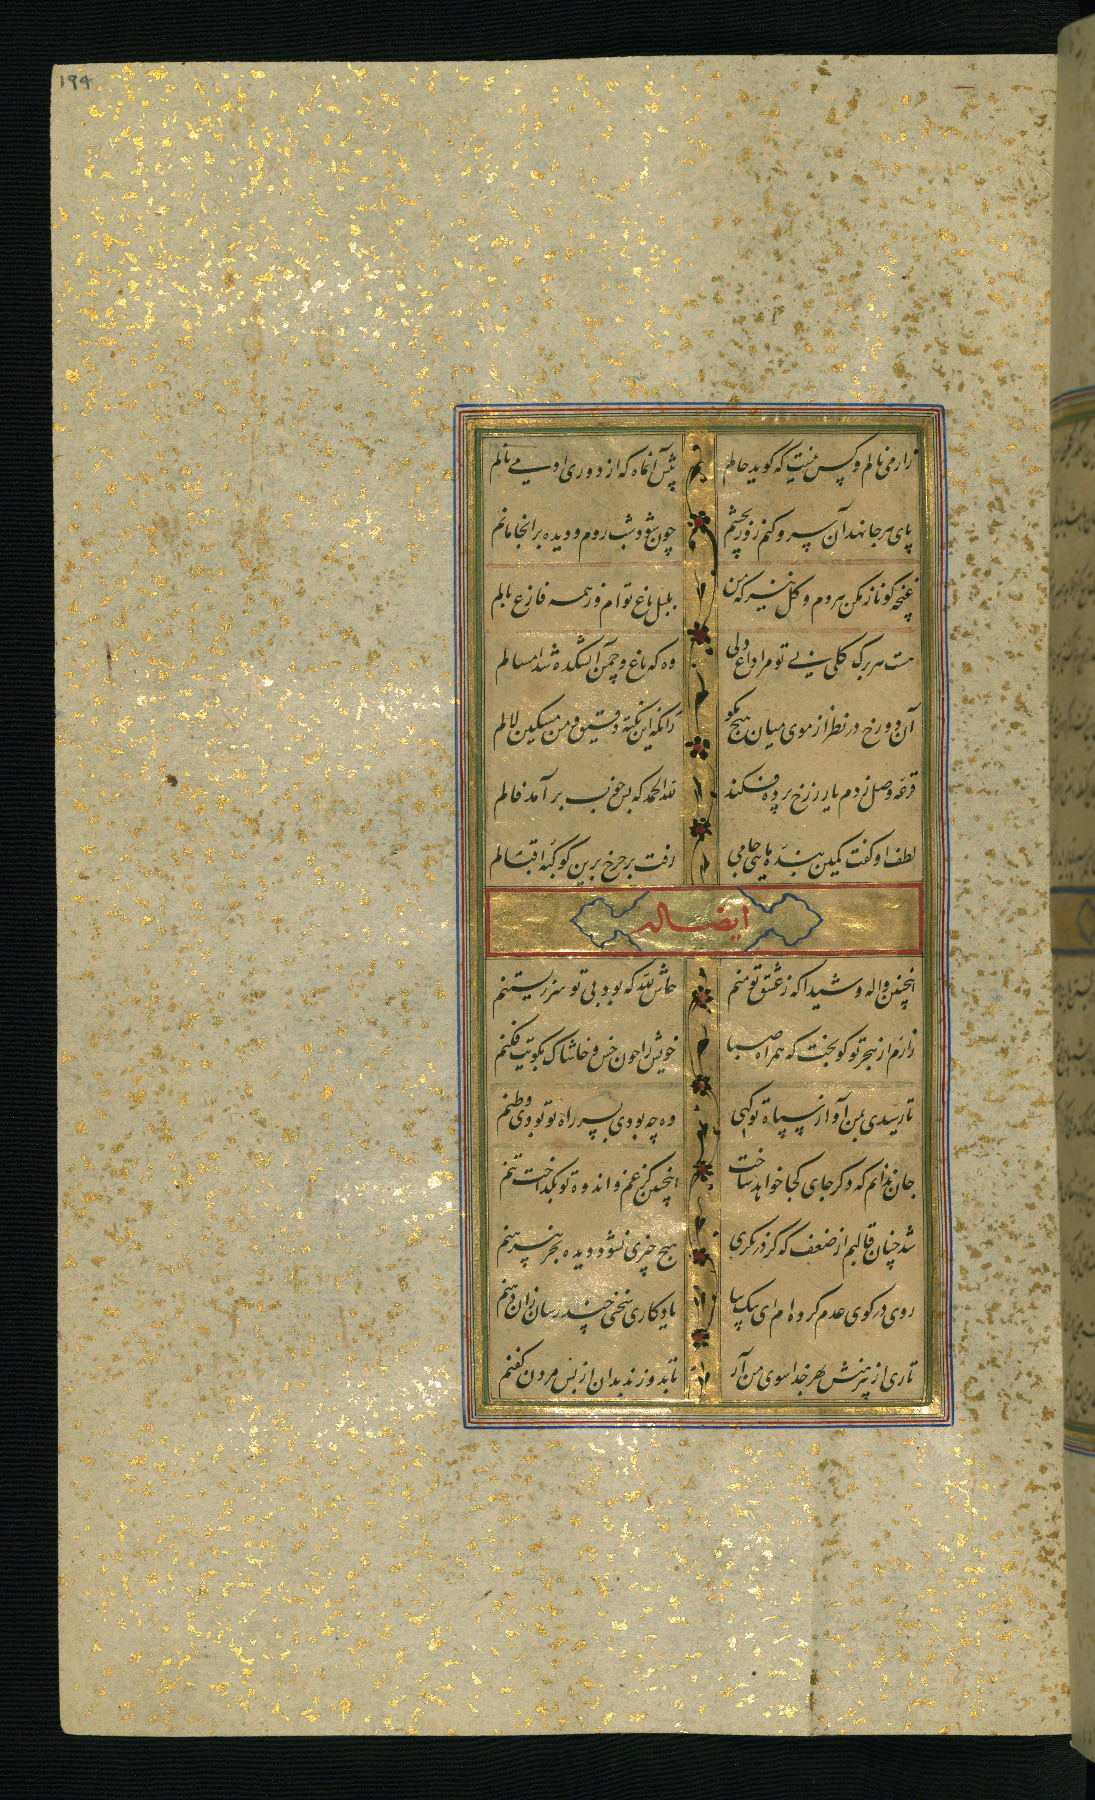 ۱۹۴
زار می نالم و کس نیست که گوید حالم پیش آن ماه که از دوری او می نالم
پای هر جا نهد آن سرو کنم زور بچشم چون شود شب روم و دیده بر انجا مالم
غنچه کو ناز مکن سر وم و کل نیز که من بلبل باغ توام وز همه فارغ بالم
هست هر برک کلی بی تو مرا داغ دلی وه که باغ و چمن آتشکده شد امسالم
آن دو رخ در نظر از موی میان هیچ مکو زانکه این نکته دقیق و من مسکین لالم
قرعه وصل زدم یار ز رخ پرده فکند لله الحمد که بس خوب بر آمد فالم
لطف او کفت کمین بنده مایی جامی رفت بر چرخ برین کوکبه اقبالم
ایضا له
اینچنین واله و شیدا که ز عشق تو منم حاش لله که بود بی تو سر زیستنم
زارم از هجر تو کو بخت که همراه صبا خویش را چون خس و خاشاک بکویت فکنم
تا رسیدی بمن آواز سپاه تو کهی وه چه بودی بسر راه تو بودی وطنم
جان ندانم که دکر جای کجا خواهد ساخت اینچنین کز غم و اندوه تو بکداخت تنم
شد چنان قالبم از ضعف که کر در نکری هیچ چیزی نشود دیده بجز پیرهنم
روی در کوی عدم کرده ام ای پیک بیا یادکاری سخنی چند رسان زان دهنم
تاری از پیرهنش بهر خدا سوی من آر تا بدوزند بدان از پس مردن کفنم